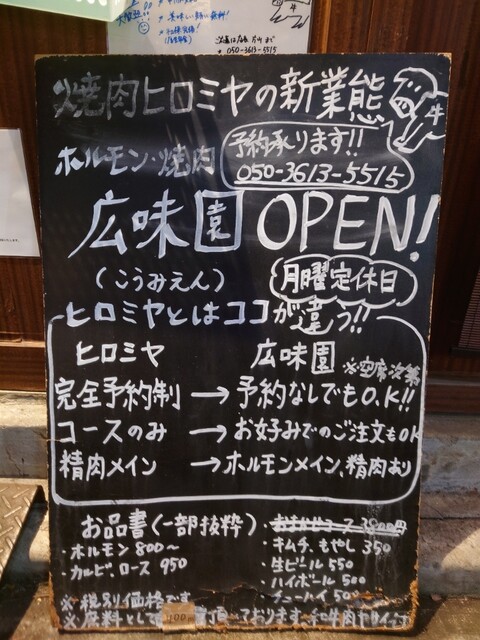 美味しい
050-3613-5515
焼肉ヒロミヤの新業態
牛
ホルモン・焼肉
予約承ります!!
050-3613-5515
広味園 OPEN!
(こうみえん)
月曜定休日
ヒロミヤとはココが違う!!
ヒロミヤ 広味園 ※空席次第
完全予約制 → 予約なしでもO.K!!
コースのみ → お好みでのご注文もOK
精肉メイン → ホルモンメイン、精肉あり
お品書(一部抜粋)
・ホルモン 800〜
・カルビ、ロース 950
・おまかせコース 3800円
・キムチ、もやし 350
・生ビール 550
・ハイボール 500
・チューハイ 500
※税別価格です
※席料として 100 頂いております